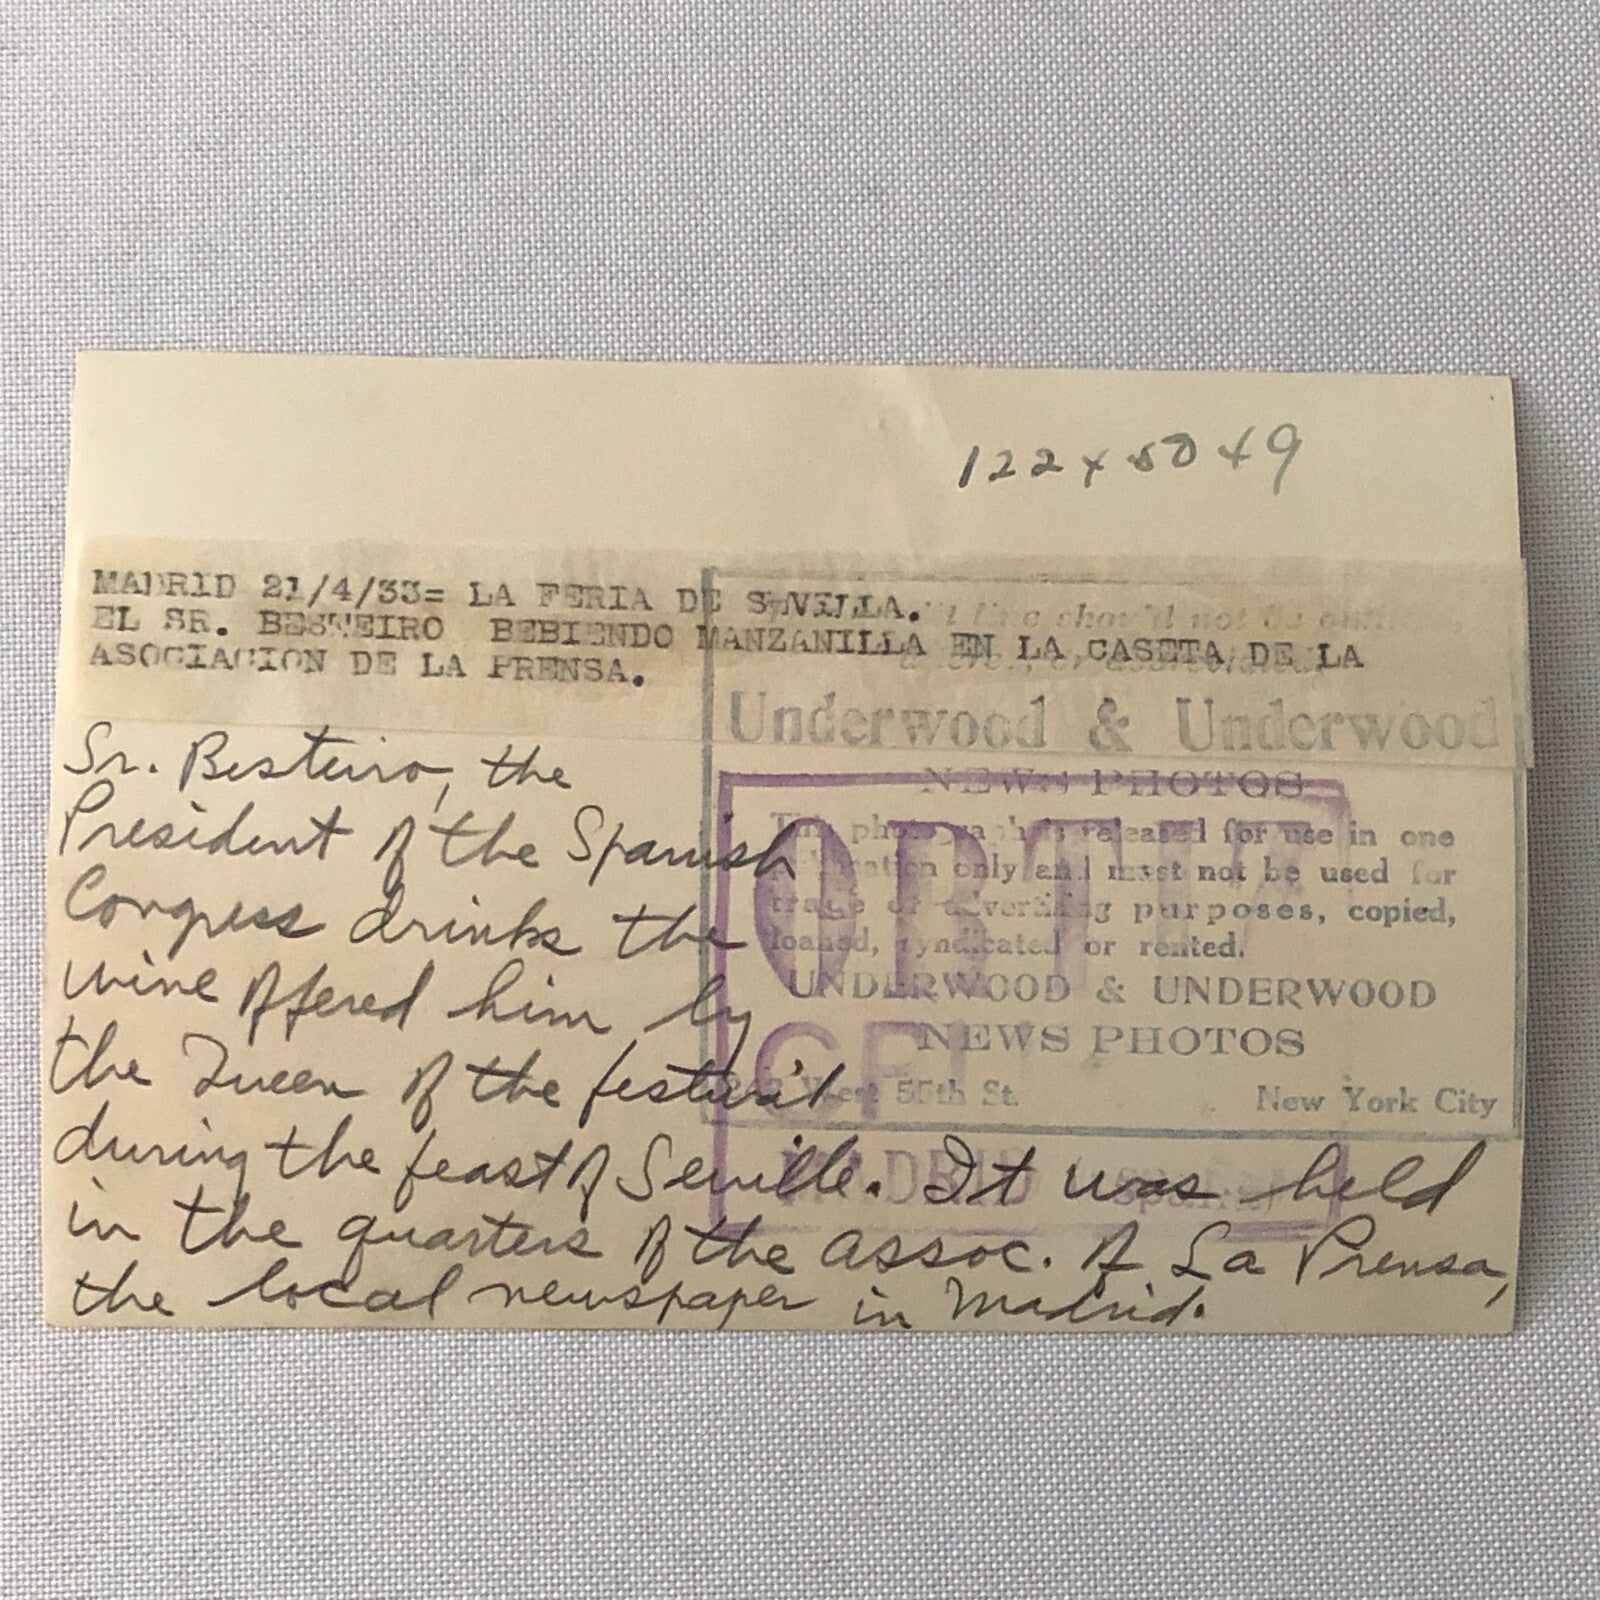 122x50x9
MADRID 21/4/33= LA FERIA DE SEVILLA.
EL SR. BESTEIRO BEBIENDO MANZANILLA EN LA CASETA DE LA
ASOCIACION DE LA PRENSA.
Sr. Besteiro, the
President of the Spanish
Congress drinks the
wine offered him by
the Queen of the festival
during the feast of Seville. It was held
in the quarters of the assoc. of La Prensa,
the local newspaper in Madrid.
line should not be
Underwood & Underwood
NEWS PHOTOS
This photograph is released for use in one
publication only and must not be used for
trade or advertising purposes, copied,
loaned, syndicated or rented.
UNDERWOOD & UNDERWOOD
NEWS PHOTOS
West 55th St. New York City
ORTIZ
MADRID (España)